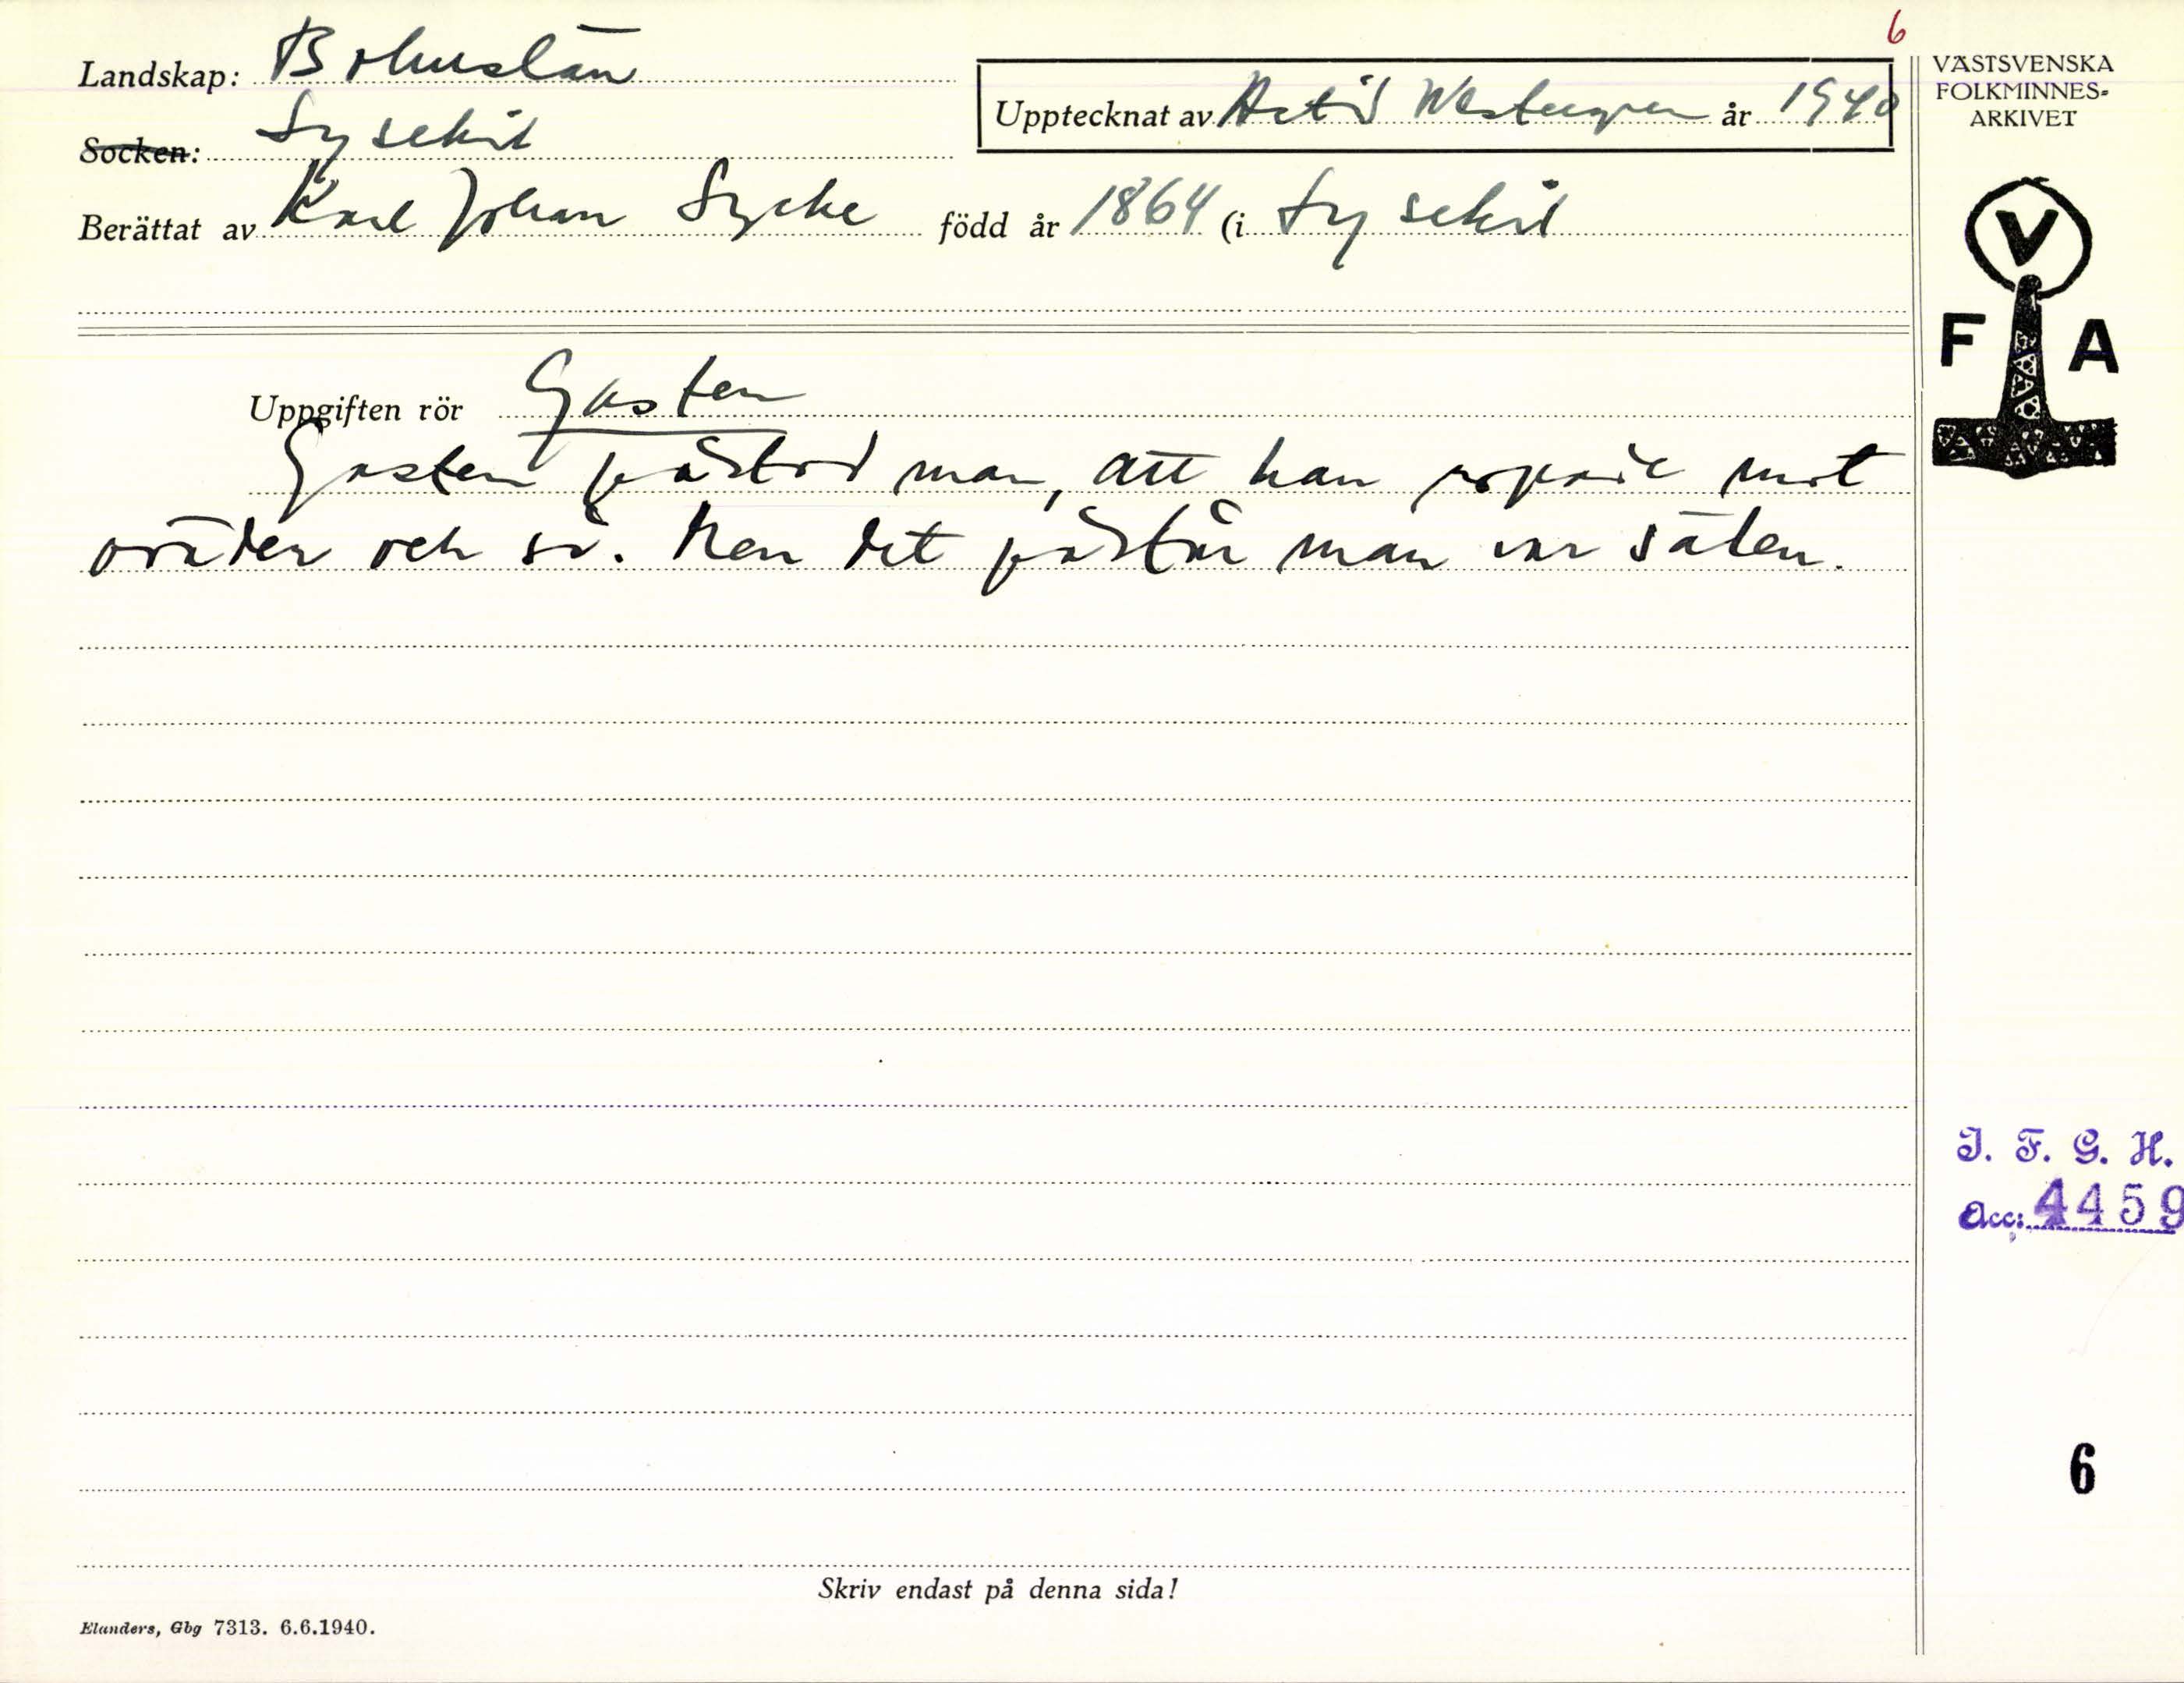 6
Landskap: Bohuslän
Socken: Lysekil
Upptecknat av Westergren år 1940
Berättat av Karl Johan Lycke född år 1864 (i Lysekil
Uppgiften rör Gasten
Gasten påstod man, att han ropade mot
oväder och så. Men det påstår man var sälen.
VÄSTSVENSKA
FOLKMINNES-
ARKIVET
V
F A
I. F. G. H.
Acc: 4459
6
Skriv endast på denna sida!
Elanders, Gbg 7313. 6.6.1940.